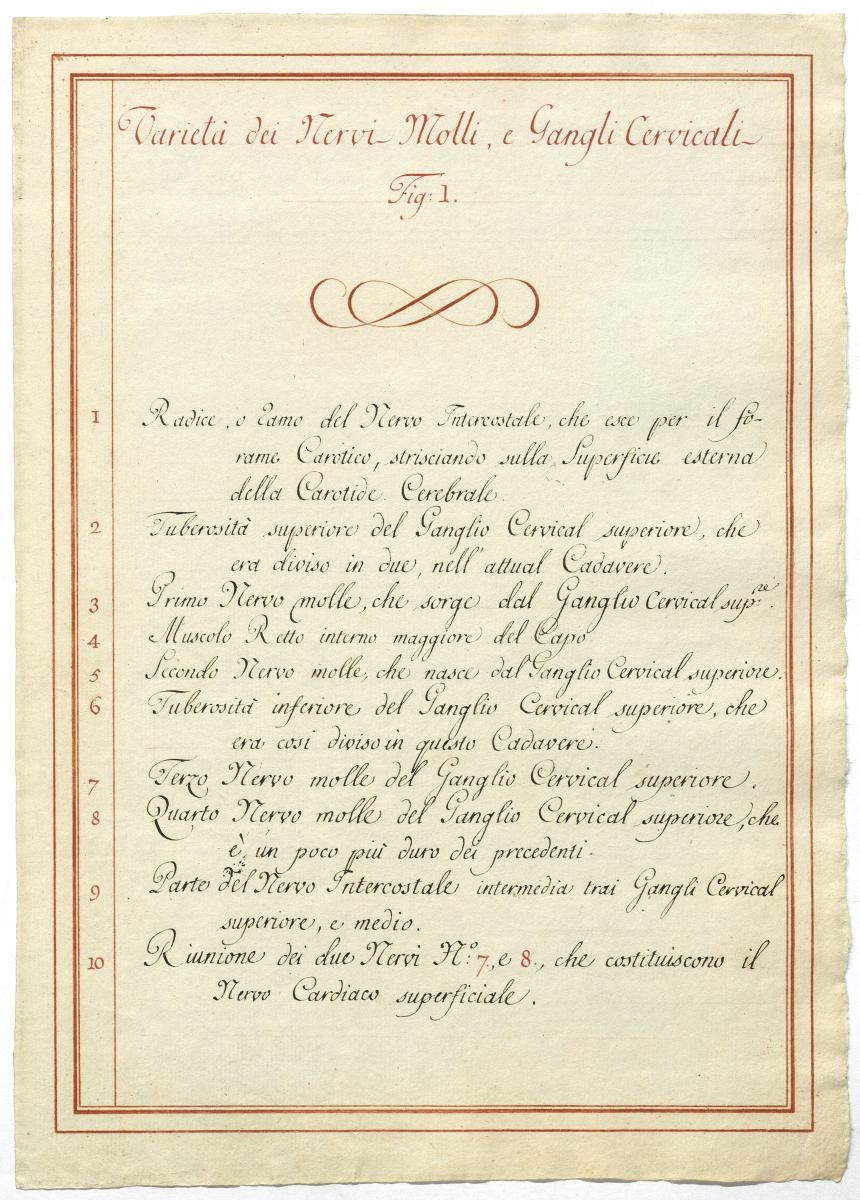 Varietà dei Nervi Molli, e Gangli Cervicali
Fig: 1.
1 Radice, o Ramo del Nervo Intercostale, che esce per il fo-
rame Carotico, strisciando sulla Superficie esterna
della Carotide Cerebrale.
2 Tuberosità superiore del Ganglio Cervical superiore, che
era diviso in due, nell' attual Cadavere.
3 Primo Nervo molle, che sorge dal Ganglio Cervical sup.re.
4 Muscolo Retto interno maggiore del Capo
5 Secondo Nervo molle, che nasce dal Ganglio Cervical superiore.
6 Tuberosità inferiore del Ganglio Cervical superiore, che
era cosi diviso in questo Cadavere.
7 Terzo Nervo molle del Ganglio Cervical superiore.
8 Quarto Nervo molle del Ganglio Cervical superiore, che
è un poco più duro dei precedenti.
9 Parte del Nervo Intercostale intermedia trai Gangli Cervical
superiore, e medio.
10 Riunione dei due Nervi N.º 7, e 8., che costituiscono il
Nervo Cardiaco superficiale.